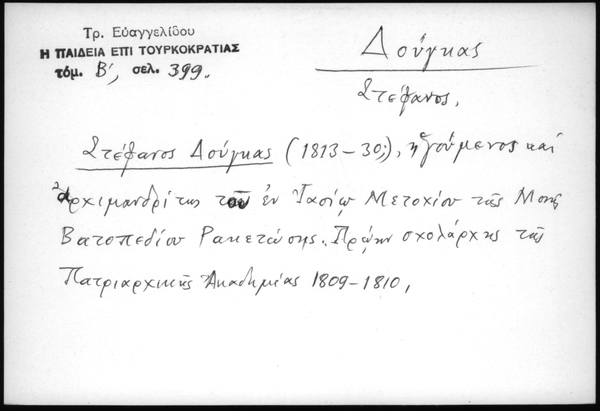 Τρ. Εὐαγγελίδου
Η ΠΑΙΔΕΙΑ ΕΠΙ ΤΟΥΡΚΟΚΡΑΤΙΑΣ
τόμ. Β', σελ. 399.
Δούγκας
Στέφανος.
Στέφανος Δούγκας (1813-30;), ἡγούμενος καὶ
ἀρχιμανδρίτης τοῦ ἐν Ἰασίῳ Μετοχίου τῆς Μονῆς
Βατοπεδίου Ρακετώσης. Πρώην σχολάρχης τῆς
Πατριαρχικῆς Ἀκαδημίας 1809-1810,